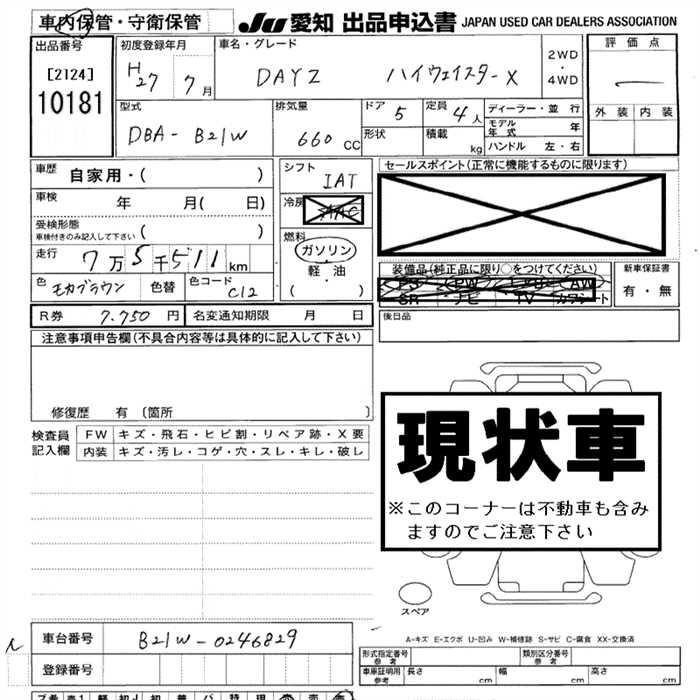 車内保管・守衛保管 JU 愛知 出品申込書 JAPAN USED CAR DEALERS ASSOCIATION
出品番号 初度登録年月 車名・グレード 2WD・4WD 評価点
[2124] H27 7月 DAYZ ハイウェイスターX
10181 型式 排気量 ドア 5 定員 4人 ディーラー・並行 外装 内装
DBA-B21W 660cc 形状 積載 kg モデル年式 年
ハンドル 左・右
車歴 自家用・( ) シフト IAT セールスポイント(正常に機能するものに限ります)
車検 年 月( 日) 冷房 AAC
受検形態 ( )
車検付きのみ記入して下さい 燃料
走行 7万5千511km ガソリン 装備品(純正品に限り○をつけてください) 新車保証書
色 モカブラウン 色替 色コード C12 軽油 PS PW AW 有・無
(・) SR ナビ TV カワシート
R券 7.750円 名変通知期限 月 日 後日品
注意事項申告欄(不具合内容等は具体的に記入して下さい)
修復歴 有 〔箇所 〕
検査員記入欄 FW キズ・飛石・ヒビ割・リペア跡・X要
内装 キズ・汚レ・コゲ・穴・スレ・キレ・破レ
現状車
※このコーナーは不動車も含み
ますのでご注意下さい
スペア
A-キズ E-エクボ U-凹み W-補修跡 S-サビ C-腐食 XX-交換済
車台番号 B21W-0246829 形式指定番号 参考 類別区分番号 参考
登録番号 車庫証明用 参考 長さ cm 幅 cm 高さ cm